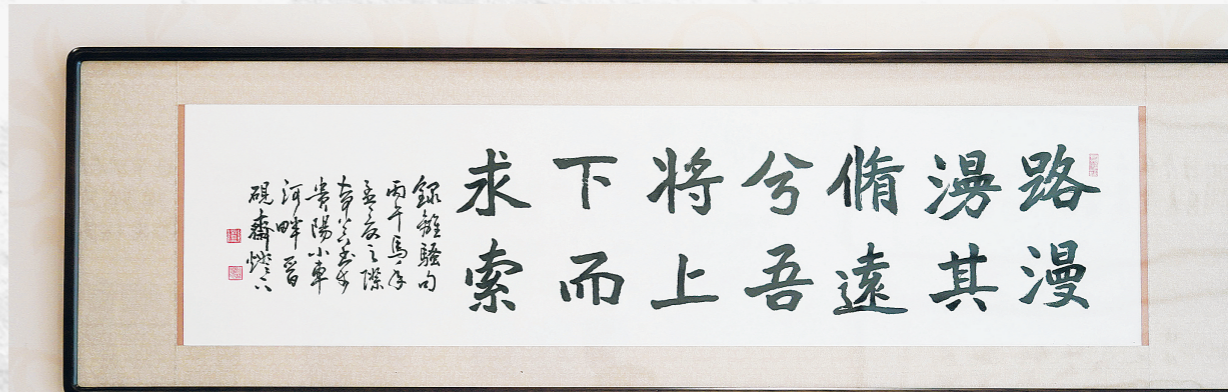 路漫
漫其
脩遠
兮吾
将上
下而
求索
錄離騷句
丙午馬年
孟夏之際
書於
貴陽小車
河畔
硯齋